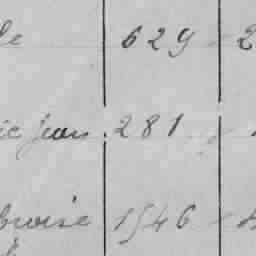 le 629 2
ic jean 281
broise 1546